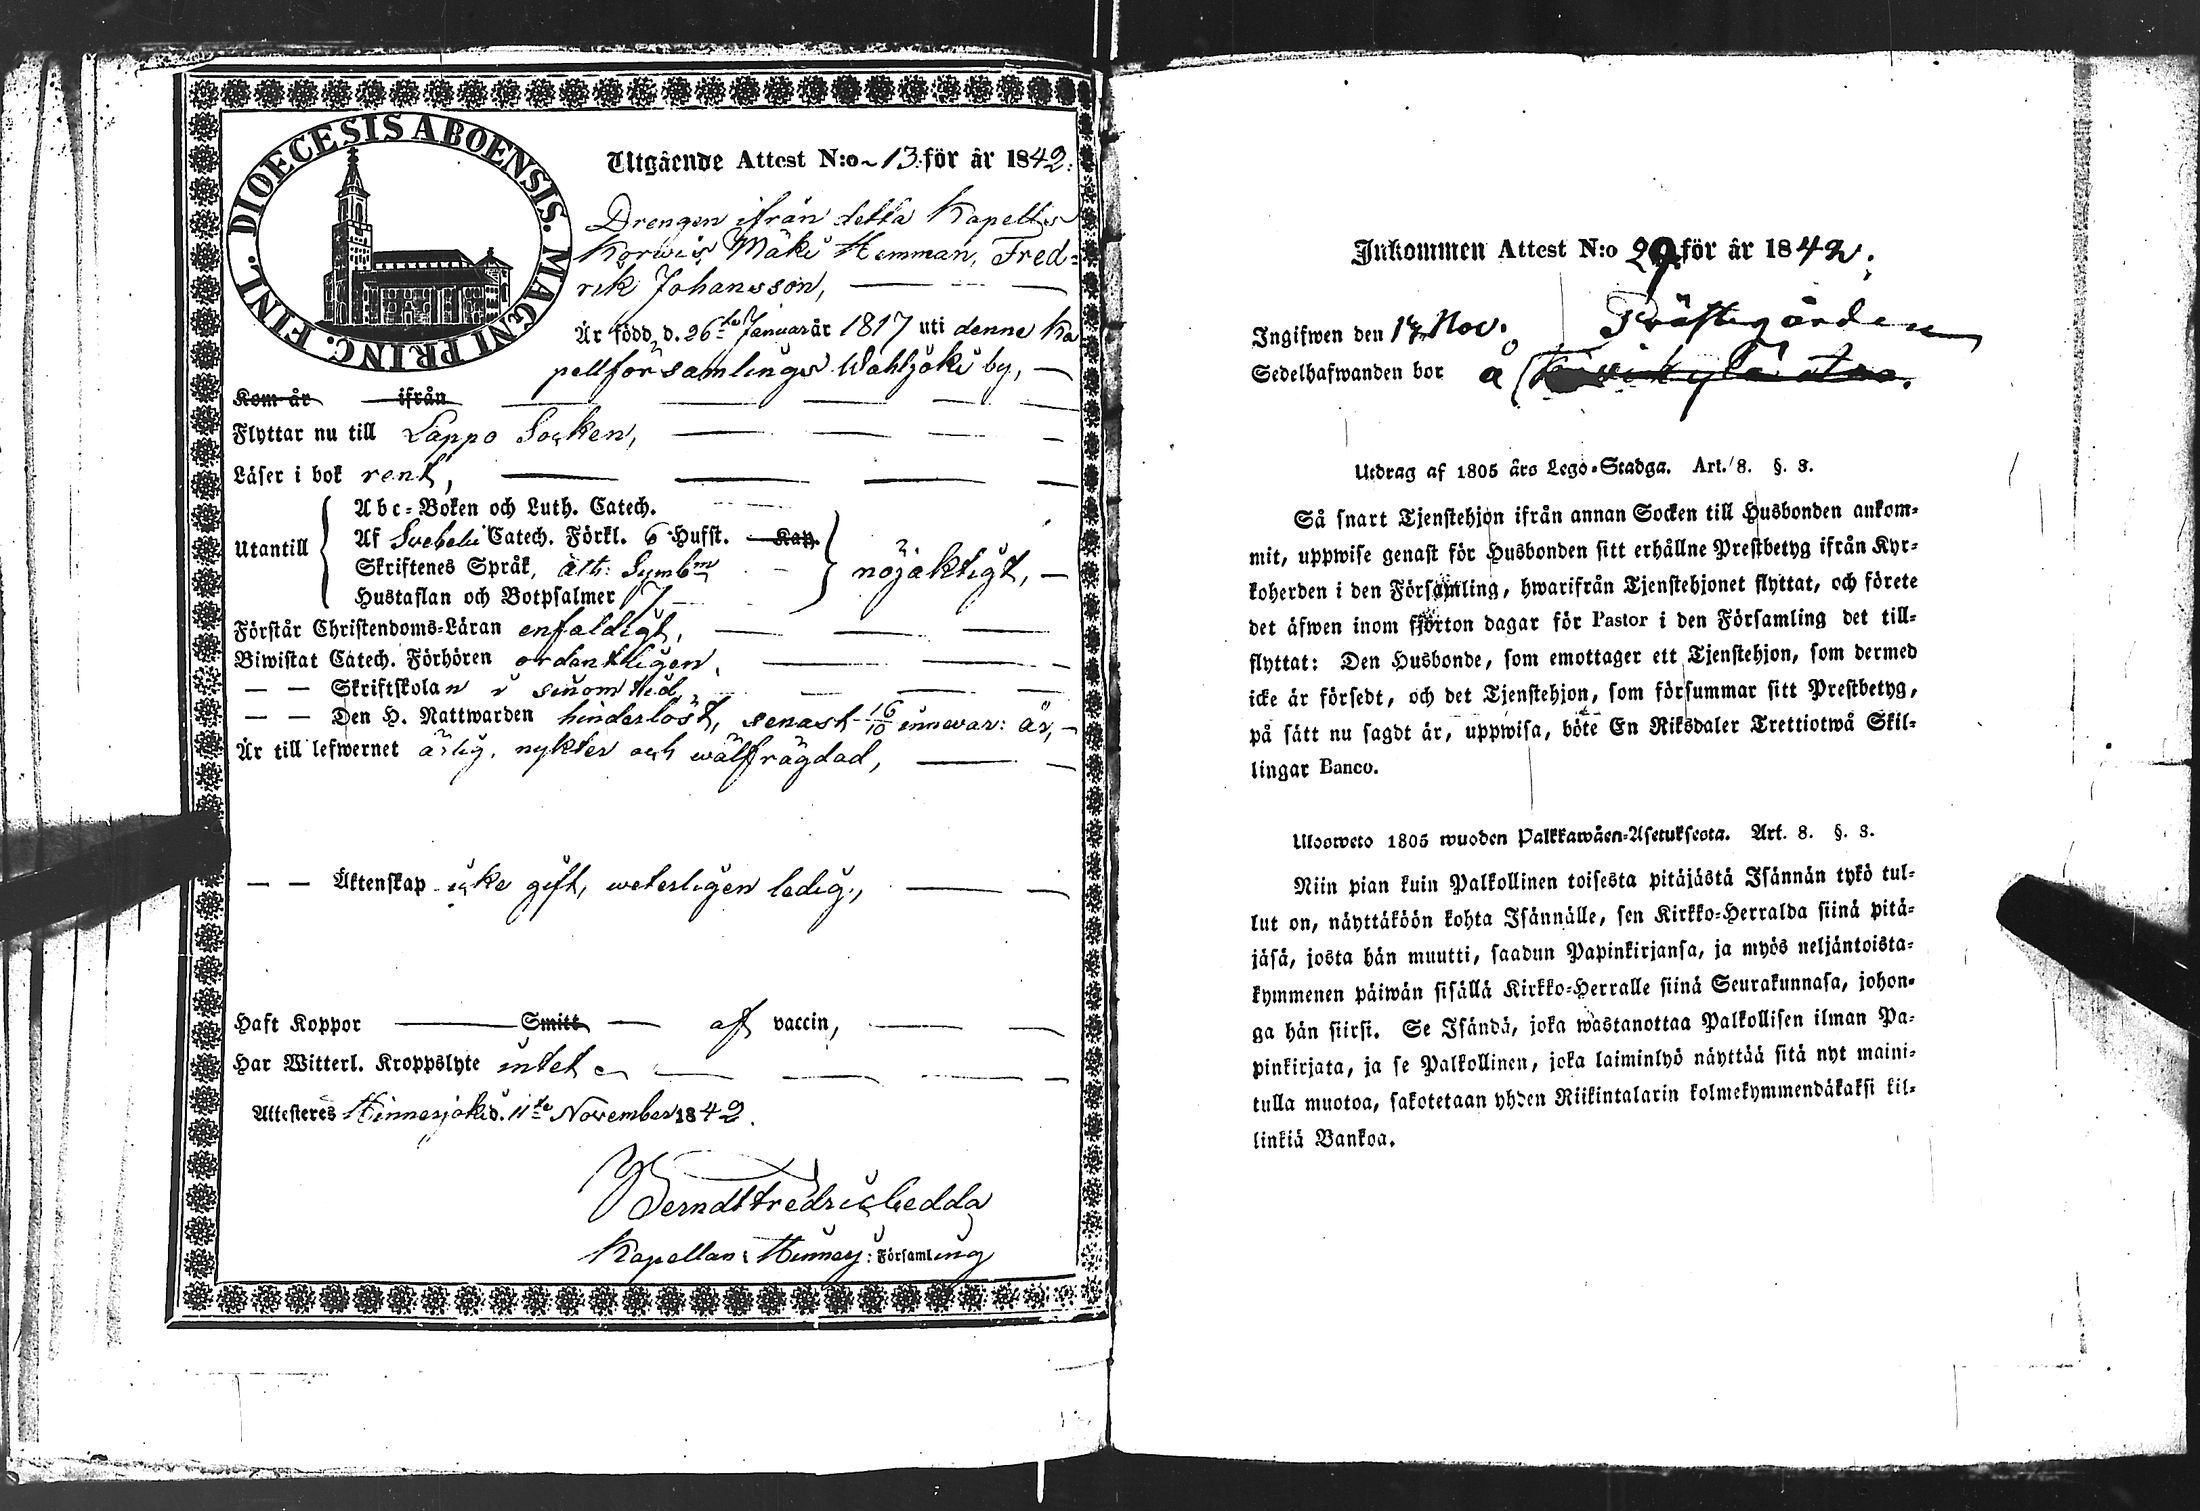 DIOECESIS ABOENSIS. MAGNI PRINC. FINL.
Utgående Attest N:o 13 för år 1842.
Drengen ifrån detta Kapells
Korwis Mäki Hemman, Fred-
rik Johansson,
Är född d. 26te Januar år 1817 uti denne Ka
pellförsamlings Wahljoki by,
Kom år ifrån
Flyttar nu till Lappo Socken,
Läser i bok rent,
Utantill
Abc-Boken och Luth. Catech.
Af Svebelii Catech. Förkl. 6 Hufst. Kap.
Skriftenes Språk, Ath: Symbm
Hustaflan och Botpsalmer 7
nöjaktigt,
Förstår Christendoms-Läran enfaldigt,
Biwistat Catech. Förhören ordentligen,
— — Skriftskolan i sinom tid,
— — Den H. Nattwarden hinderlöst, senast 16/10 innevar: år,
Är till lefwernet ärlig, nykter och wälfrägdad,
— — Äktenskap icke gift, weterligen ledig,
Haft Koppor Smitt af vaccin,
Har Witterl. Kroppslyte intet
Attesteras Hinnerjoki d. 11te November 1842.
Berndt Fredric Gedda
Kapellan i Hinnerj: Församling
Inkommen Attest N:o 29 för år 1842.
Ingifwen den 17 Nov. Prästegården
Sedelhafwanden bor å
Utdrag af 1805 års Lego-Stadga. Art. 8. §. 3.
Så snart Tjenstehjon ifrån annan Socken till Husbonden ankom-
mit, uppwise genast för Husbonden sitt erhållne Prestbetyg ifrån Kyr-
koherden i den Församling, hwarifrån Tjenstehjonet flyttat, och förete
det äfwen inom fjorton dagar för Pastor i den Församling det till-
flyttat: Den Husbonde, som emottager ett Tjenstehjon, som dermed
icke är försedt, och det Tjenstehjon, som försummar sitt Prestbetyg,
på sätt nu sagdt är, uppwisa, böte En Riksdaler Trettiotwå Skil-
lingar Banco.
Ulosweto 1805 wuoden Palkkawäen-Asetuksesta. Art. 8. §. 3.
Niin pian kuin Palkollinen toisesta pitäjästä Isännän tykö tul-
lut on, näyttäköön kohta Isännälle, sen Kirkko-Herralda siinä pitä-
jäsä, josta hän muutti, saadun Papinkirjansa, ja myös neljäntoista-
kymmenen päiwän sisällä Kirkko-Herralle siinä Seurakunnasa, johon-
ga hän siirsi. Se Isändä, joka wastanottaa Palkollisen ilman Pa-
pinkirjata, ja se Palkollinen, joka laiminlyö näyttää sitä nyt maini-
tulla muotoa, sakotetaan yhden Riikintalarin kolmekymmendäkaksi kil-
linkiä Bankoa.